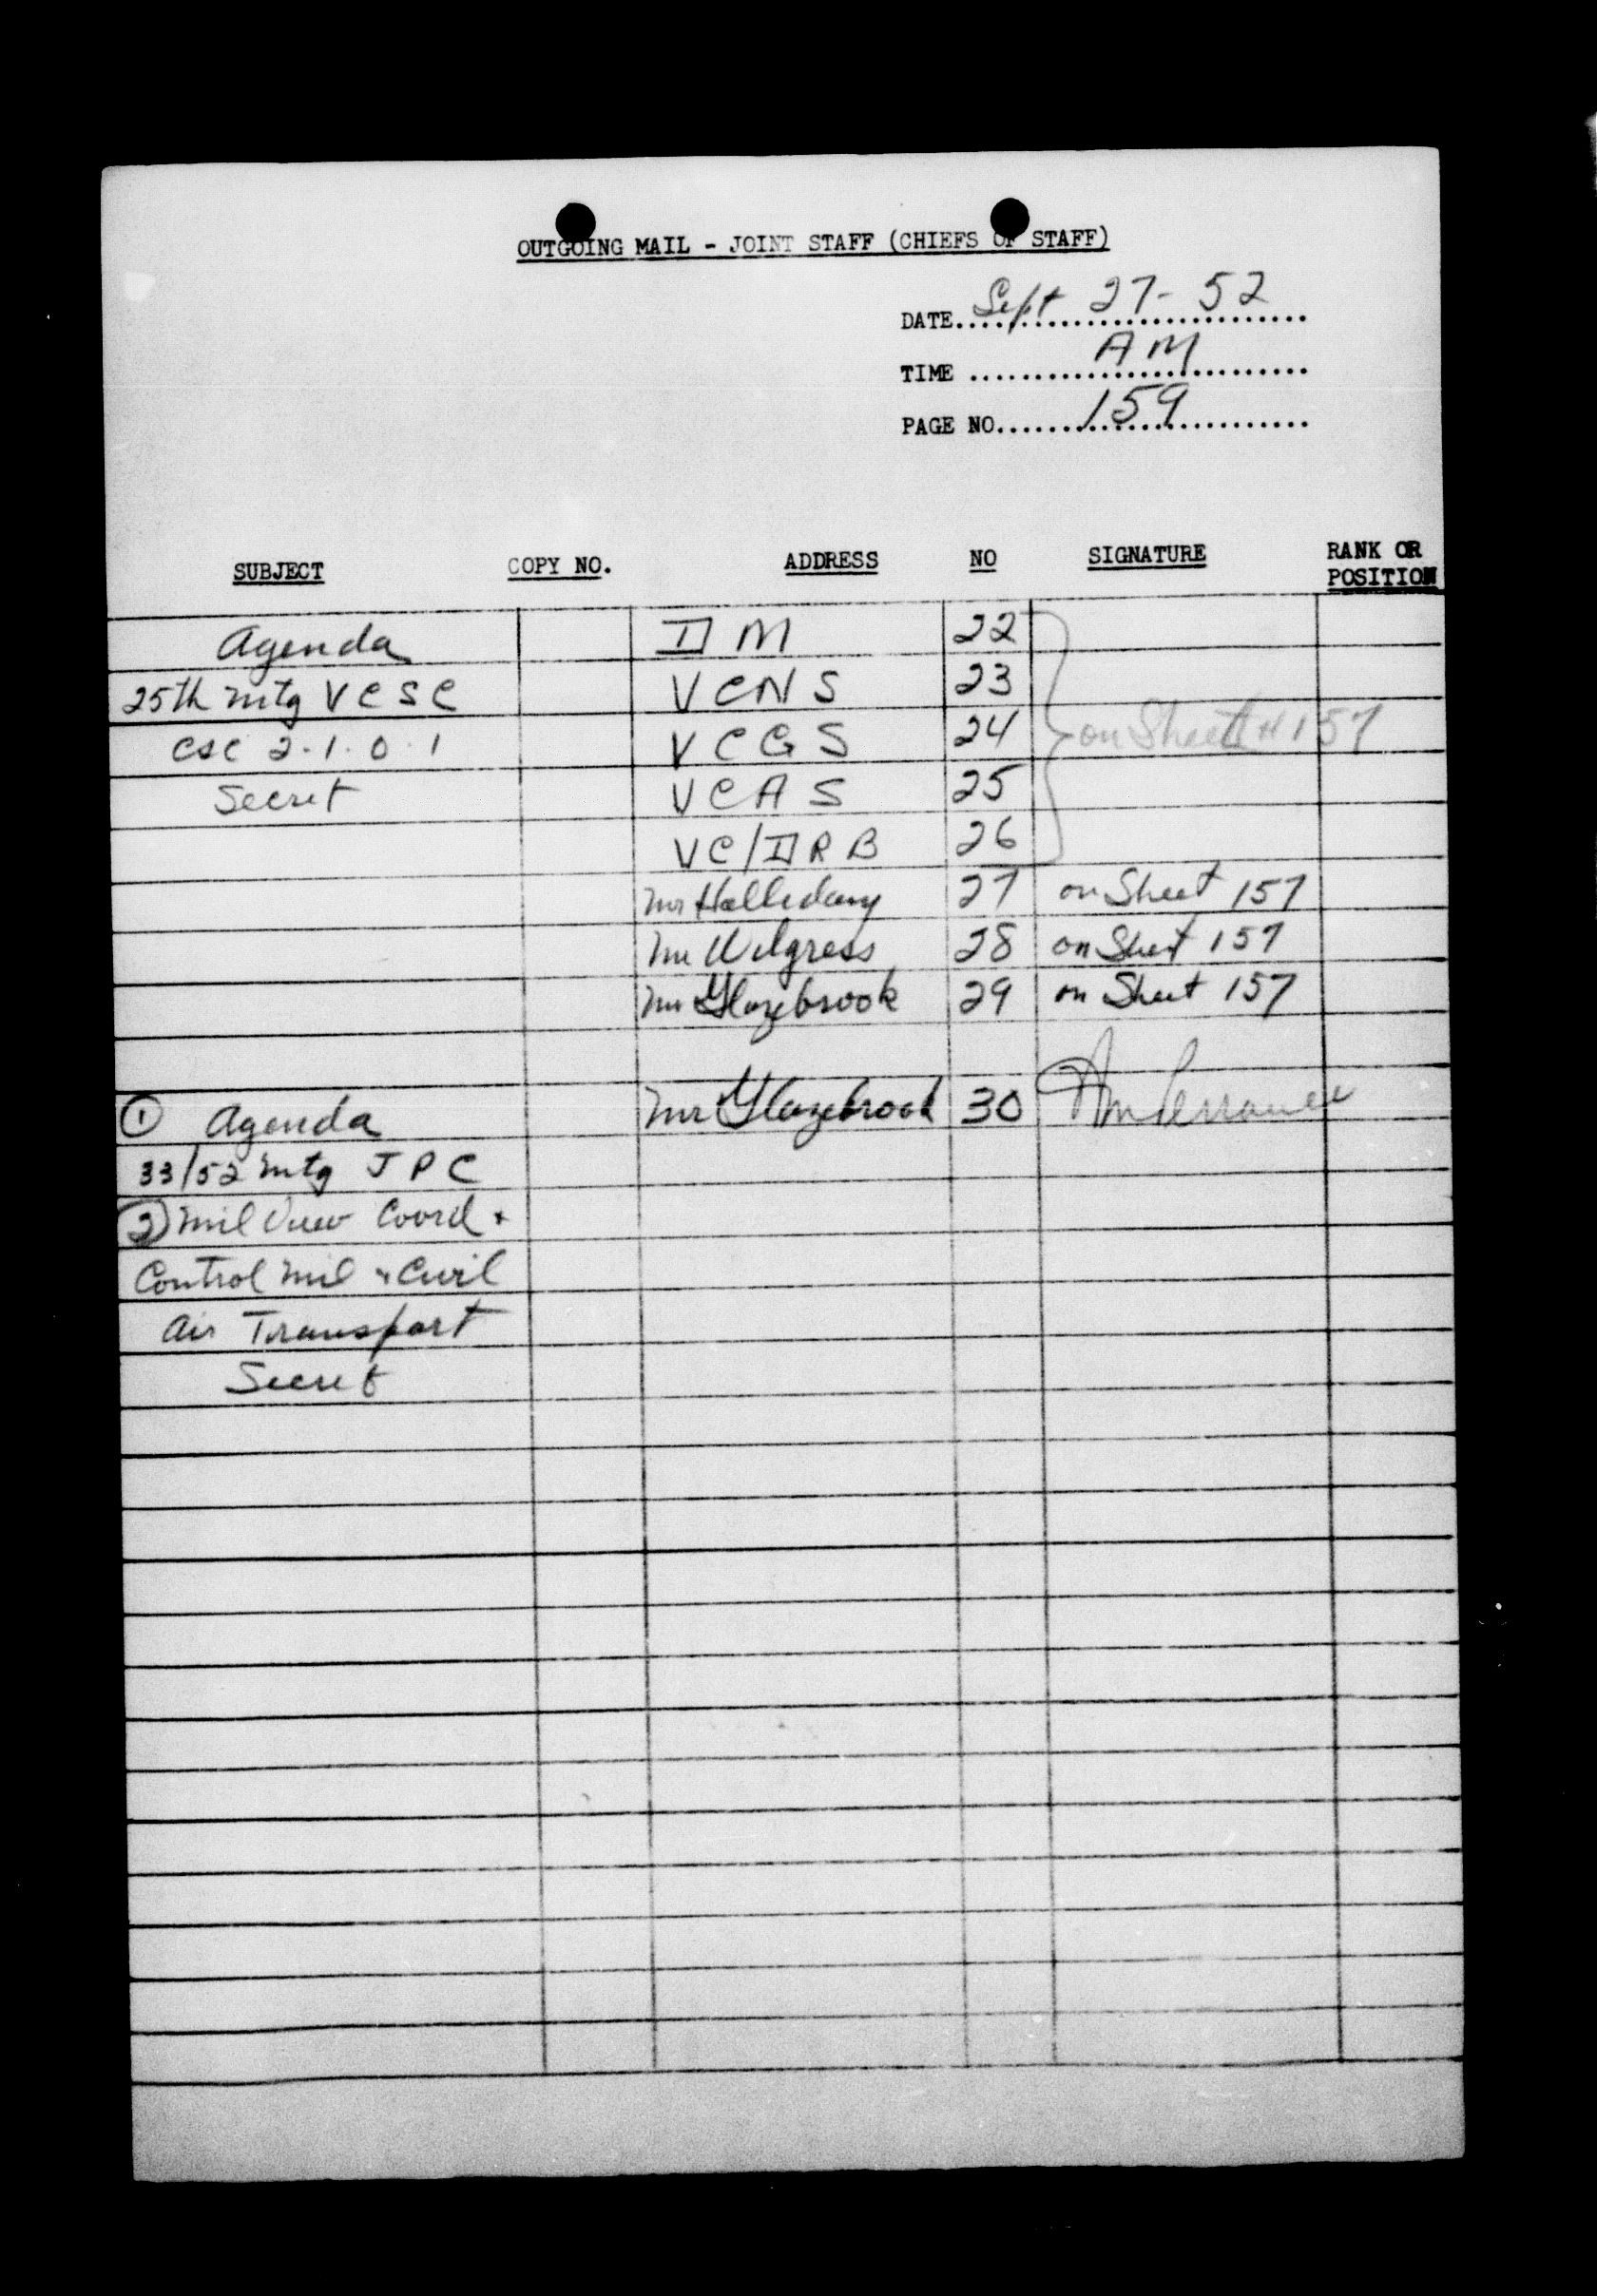 OUTGOING MAIL - JOINT STAFF (CHIEFS OF STAFF)
DATE Sept 27-52
TIME AM
PAGE NO. 159
SUBJECT COPY NO. ADDRESS NO SIGNATURE RANK OR POSITION
Agenda DM 22
25th mtg VCSC VCNS 23
CSC 2.1.0.1 VCGS 24 on Sheet # 157
Secret VCAS 25
VC/DRB 26
Mr Halliday 27 on Sheet 157
Mr Wilgress 28 on Sheet 157
Mr Glazebrook 29 on Sheet 157
① Agenda Mr Glazebrook 30
33/52 mtg JPC
② Mil View Coord +
Control Mil + Civil
Air Transport
Secret